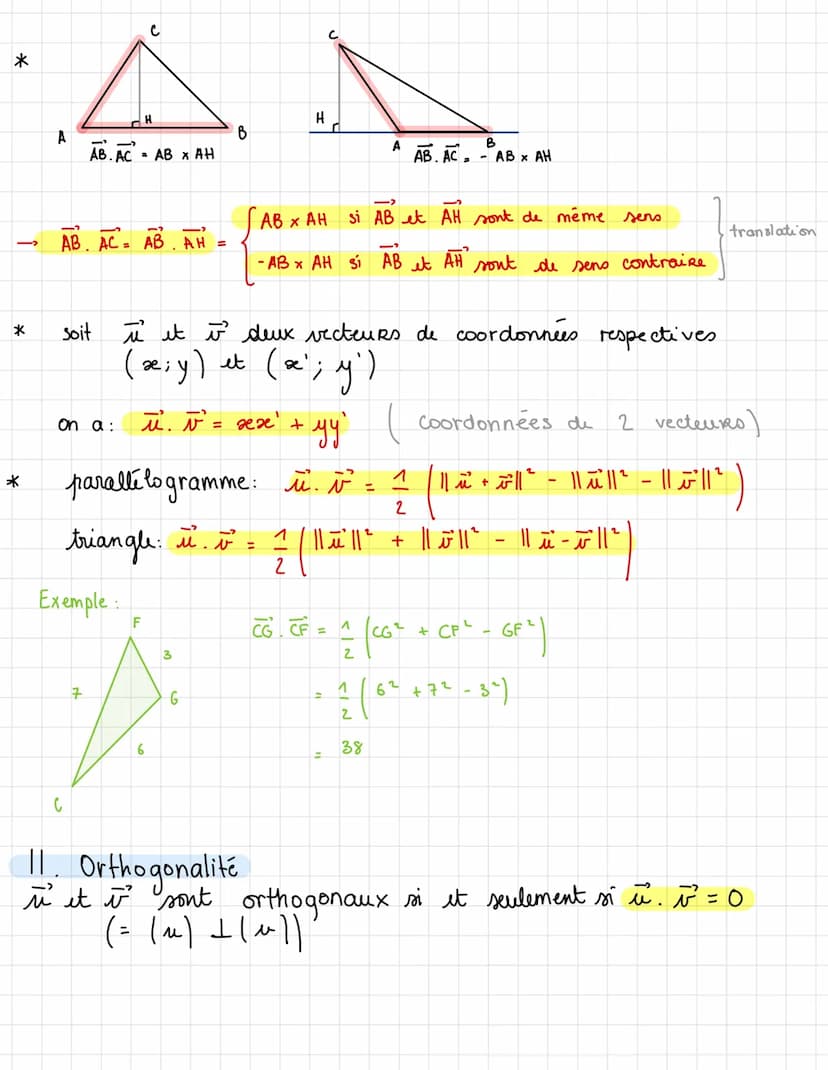 *
C
A H B
AB⃗ . AC⃗ = AB × AH
C
H A B
AB⃗ . AC⃗ = - AB × AH
→ AB⃗ . AC⃗ = AB⃗ . AH⃗ = { AB × AH si AB⃗ et AH⃗ sont de même sens
- AB × AH si AB⃗ et AH⃗ sont de sens contraire } translation
* soit u⃗ et v⃗ deux vecteurs de coordonnées respectives
(x; y) et (x'; y')
on a: u⃗ . v⃗ = xx' + yy' ( coordonnées de 2 vecteurs)
* parallélogramme: u⃗ . v⃗ = 1/2 (||u⃗ + v⃗||² - ||u⃗||² - ||v⃗||²)
triangle: u⃗ . v⃗ = 1/2 (||u⃗||² + ||v⃗||² - ||u⃗ - v⃗||²)
Exemple :
F
3
7
G
6
C
CG⃗ . CF⃗ = 1/2 (CG² + CF² - GF²)
= 1/2 (6² + 7² - 3²)
= 38
II. Orthogonalité
u⃗ et v⃗ sont orthogonaux si et seulement si u⃗ . v⃗ = 0
(= (u) ⊥ (v))